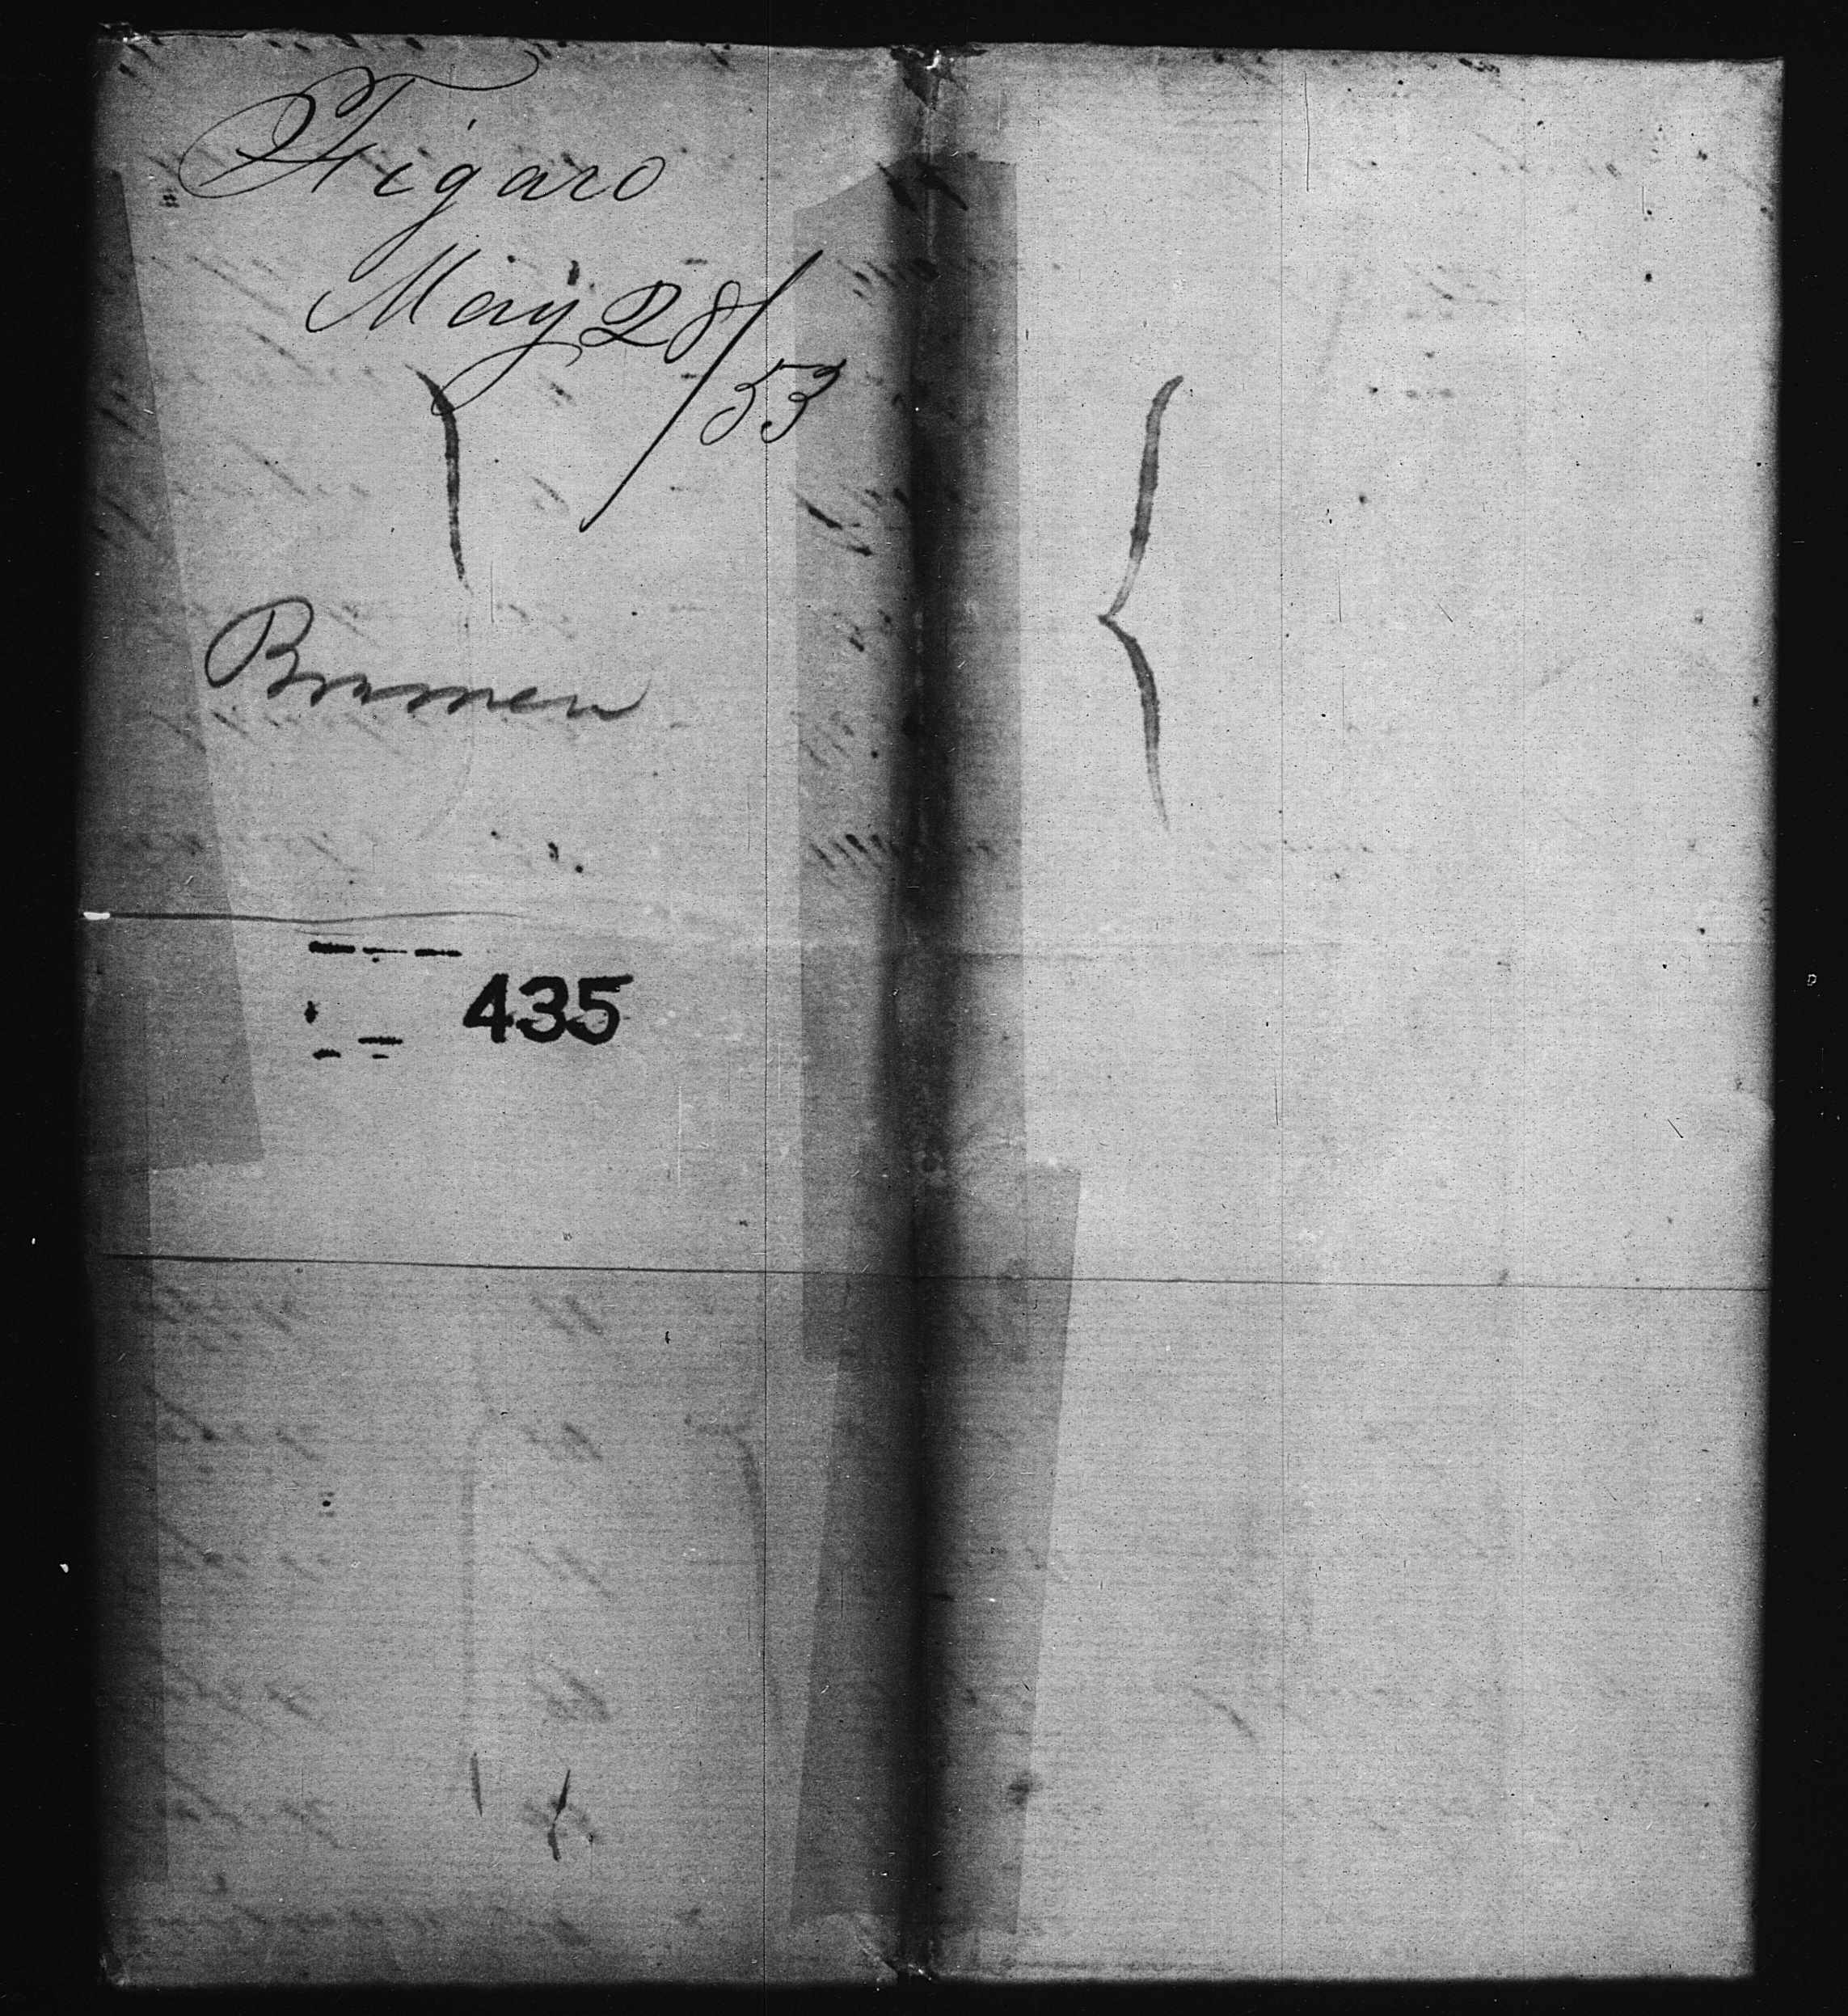 Figaro
May 28/53
Bremen
435